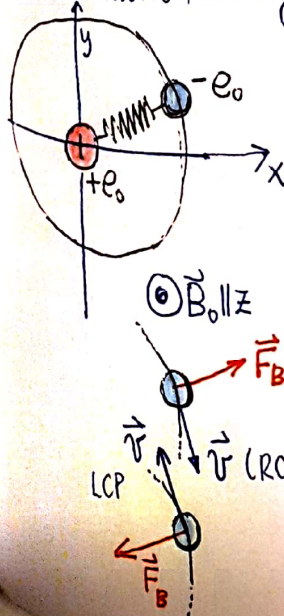 (
y
-e₀
+
x
+e₀
⊙ B⃗₀∥z
F⃗_B
v⃗
v⃗ (RC
LCP
F⃗_B